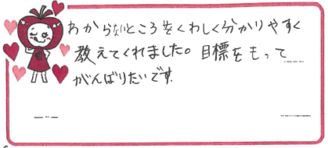 わからないところをくわしく分かりやすく
教えてくれました。目標をもって
がんばりたいです。